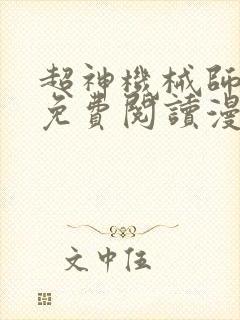 超神機械師
免費閱讀漫
文中伍